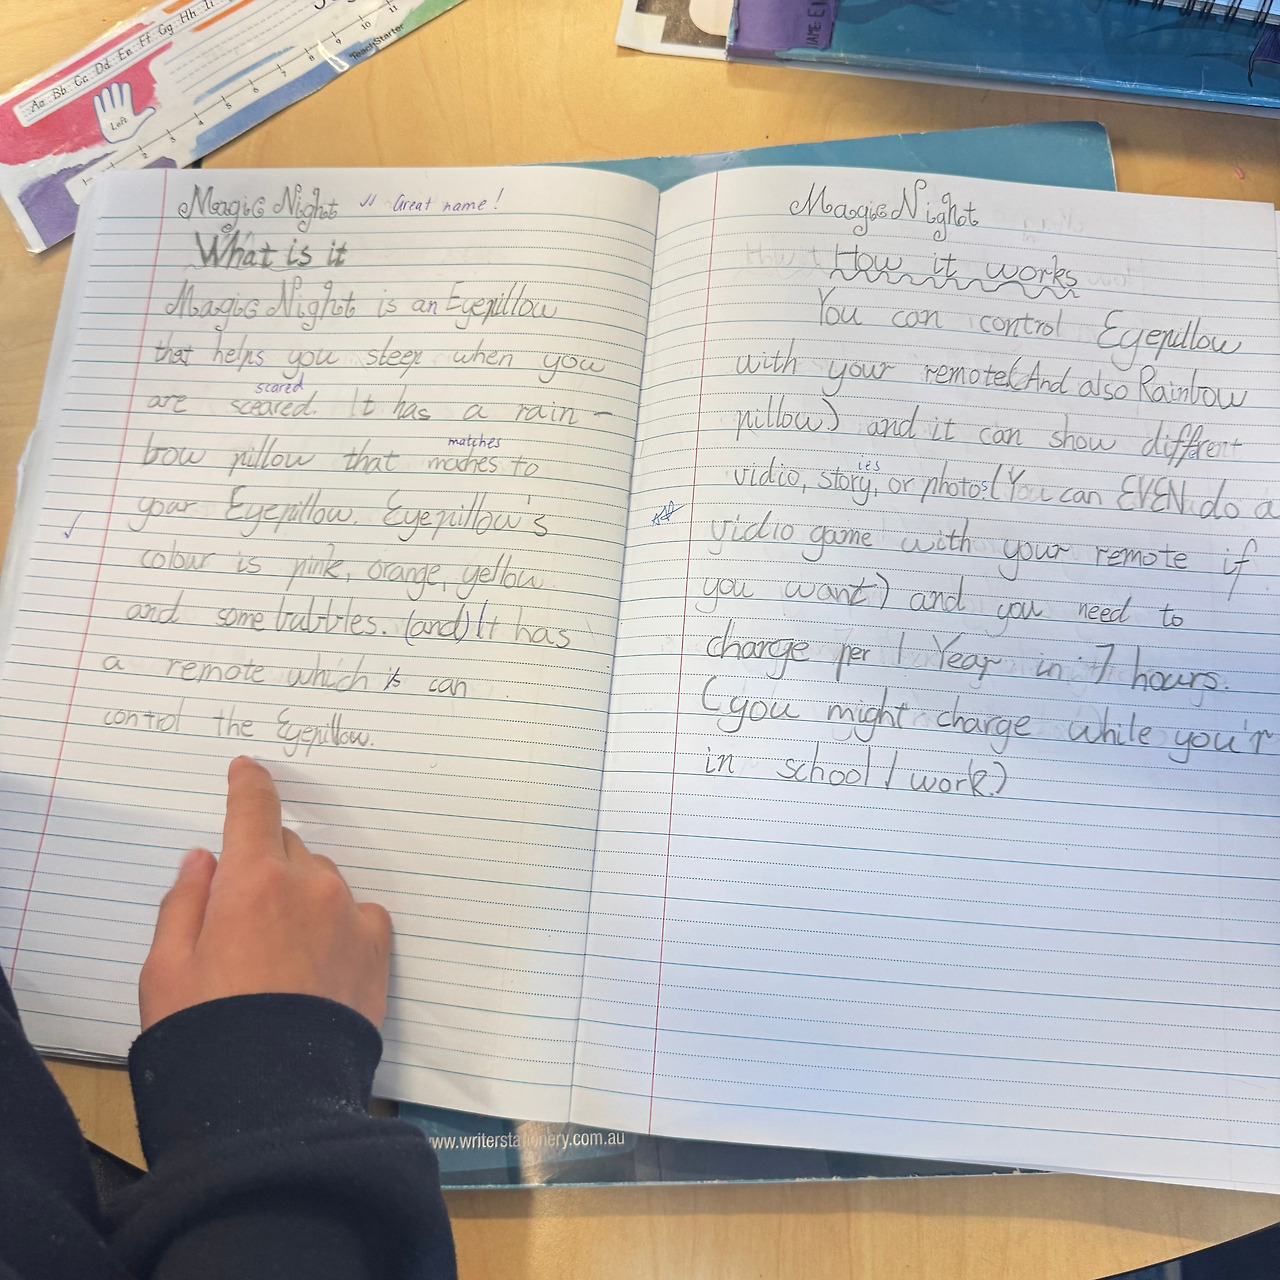 Aa Bb Cc Dd Ee Ff Gg Hh Ii
Left
1 2 3 4 5 6 7 8 9 10 11
TeachStarter
Magic Night Great name!
What is it
Magic Night is an Eyepillow
that helps you sleep when you
scared
are sceared. It has a rain-
matches
bow pillow that maches to
your Eyepillow. Eyepillow's
colour is pink, orange, yellow
and some bubbles. (and) It has
a remote which is can
control the Eyepillow.
Magic Night
How it works
You can control Eyepillow
with your remote(And also Rainbow
pillow) and it can show different
ies
vidio, story, or photos(You can EVEN do a
vidio game with your remote if
you want) and you need to
charge per 1 Year in 7 hours.
(you might charge while you'r
in school/work)
www.writerstationery.com.au